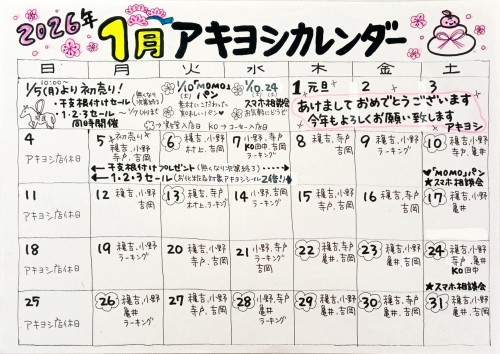 2026年
1月 アキヨシカレンダー
日 月 火 水 木 金 土
10:00〜
1/5(月)より初売り!
・干支根付けセール
・1・2・3セール
同時開催
1/10 "MOMO"
パン
素材にこだわった
美味しいパン
1/10.24
(土)(土)
スマホ相談会
お気軽にどうぞ
1 元日 2 3
あけましておめでとうございます
今年もよろしくお願い致します
アキヨシ
4 アキヨシ店休日
5 初売り
穐吉、小野
寺戸、吉岡
6 穐吉、小野
村上、吉岡
7 小野、寺戸
KO田中、吉岡
ラーキング
8 穐吉、寺戸
吉岡
9 穐吉、小野
寺戸、吉岡
10 穐吉、小野
寺戸、亀井
"MOMO"パン
★スマホ相談会
干支根付けプレゼント(無くなり次第終了)
1・2・3セール
2倍!
11 アキヨシ店休日
12 穐吉、小野
吉岡
13 穐吉、寺戸
村上、ラーキング
14 小野、寺戸
吉岡
15 穐吉、寺戸
吉岡
16 穐吉、小野
寺戸、吉岡
17 穐吉、小野
亀井
18 アキヨシ店休日
19 穐吉、小野
ラーキング
20 穐吉、小野
寺戸、吉岡
21 小野、寺戸
ラーキング
22 穐吉、寺戸
亀井、吉岡
23 穐吉、小野
寺戸、吉岡
24 穐吉、寺戸
亀井
KO田中
★スマホ相談会
25 アキヨシ店休日
26 穐吉、小野
亀井
ラーキング
27 穐吉、小野
寺戸、吉岡
28 小野、寺戸
亀井
ラーキング
29 穐吉、寺戸
亀井、吉岡
30 穐吉、小野
寺戸、亀井
31 穐吉、小野
寺戸、亀井